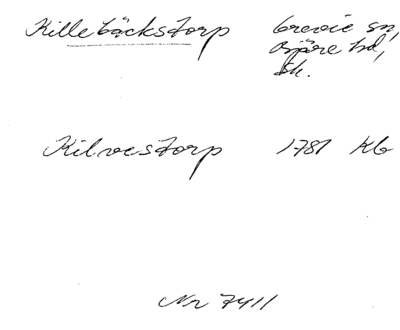 Killebäckstorp Grevie sn,
Bjäre hd,
Sk.
Kilvestorp 1787 Kb
Nr 7411